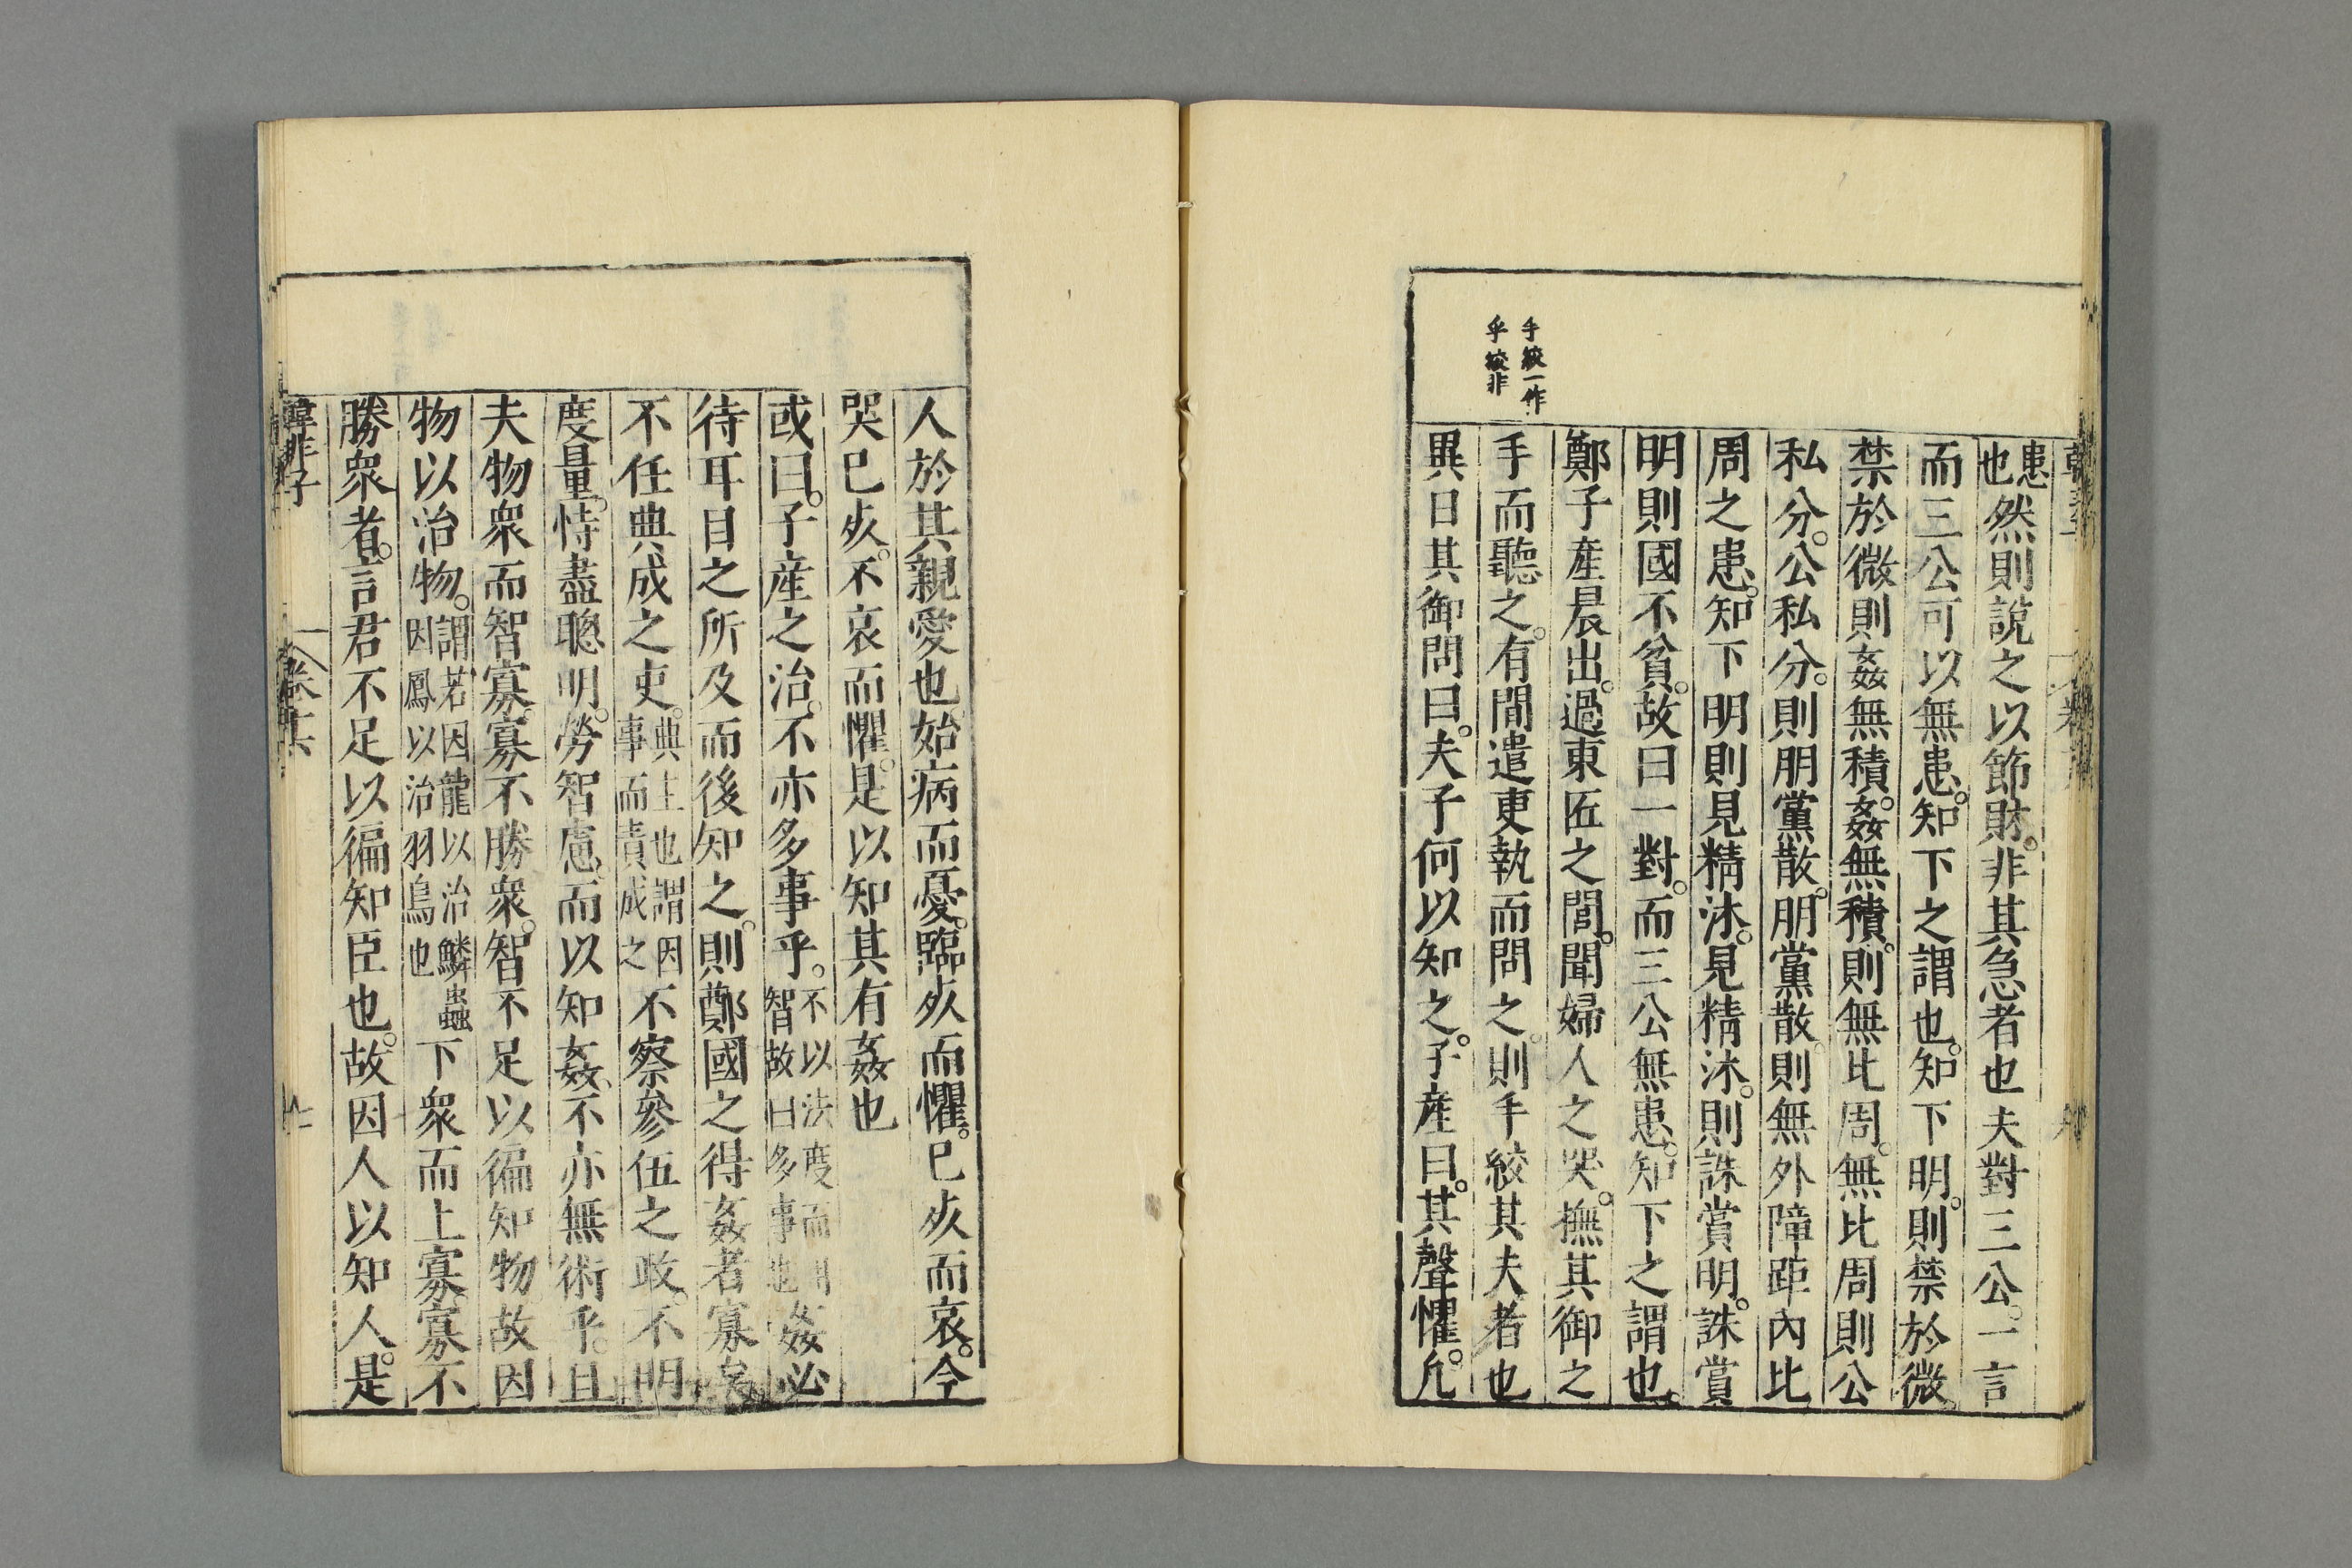 患也然則說之以節財。非其急者也夫對三公。一言
而三公可以無患。知下之謂也。知下明。則禁於微。
禁於微則姦無積。姦無積。則無比周。無比周則公
私分。公私分。則朋黨散。朋黨散。則無外障距內比
周之患。知下明則見精沐。見精沐。則誅賞明。誅賞
明則國不貧。故曰一對。而三公無患。知下之謂也。
鄭子産晨出。過東匠之閭。聞婦人之哭。撫其御之
手而聽之。有間遣吏執而問之。則手絞其夫者也
異日其御問曰。夫子何以知之。子産曰。其聲懼。凡
手絞一作
乎絞非
人於其親愛也始病而憂。臨㱙而懼。已㱙而哀。今
哭已㱙。不哀而懼。是以知其有姦也
或曰。子産之治。不亦多事乎。不以法度而用智故曰多事也姦必
待耳目之所及而後知之。則鄭國之得姦者寡矣
不任典成之吏。典主也謂因事而責成之不察參伍之政。不明
度量。恃盡聰明。勞智慮。而以知姦。不亦無術乎。且
夫物衆而智寡。寡不勝衆。智不足以徧知物故因
物以治物。謂若因龍以治鱗蟲因鳳以治羽鳥也下衆而上寡。寡不
勝衆者。言君不足以徧知臣也。故因人以知人。是
韓非子 卷十六